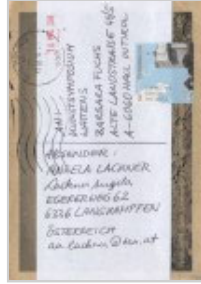 AN:
KUNSTSYMPOSIUM
WATTENS
BARBARA FUCHS
ALTE LANDSTRASSE
A-6060 HALL IN TIROL
ABSENDER:
ANGELA LACKNER
Lackner Angela
62
LANGKAMPFEN
ÖSTERREICH